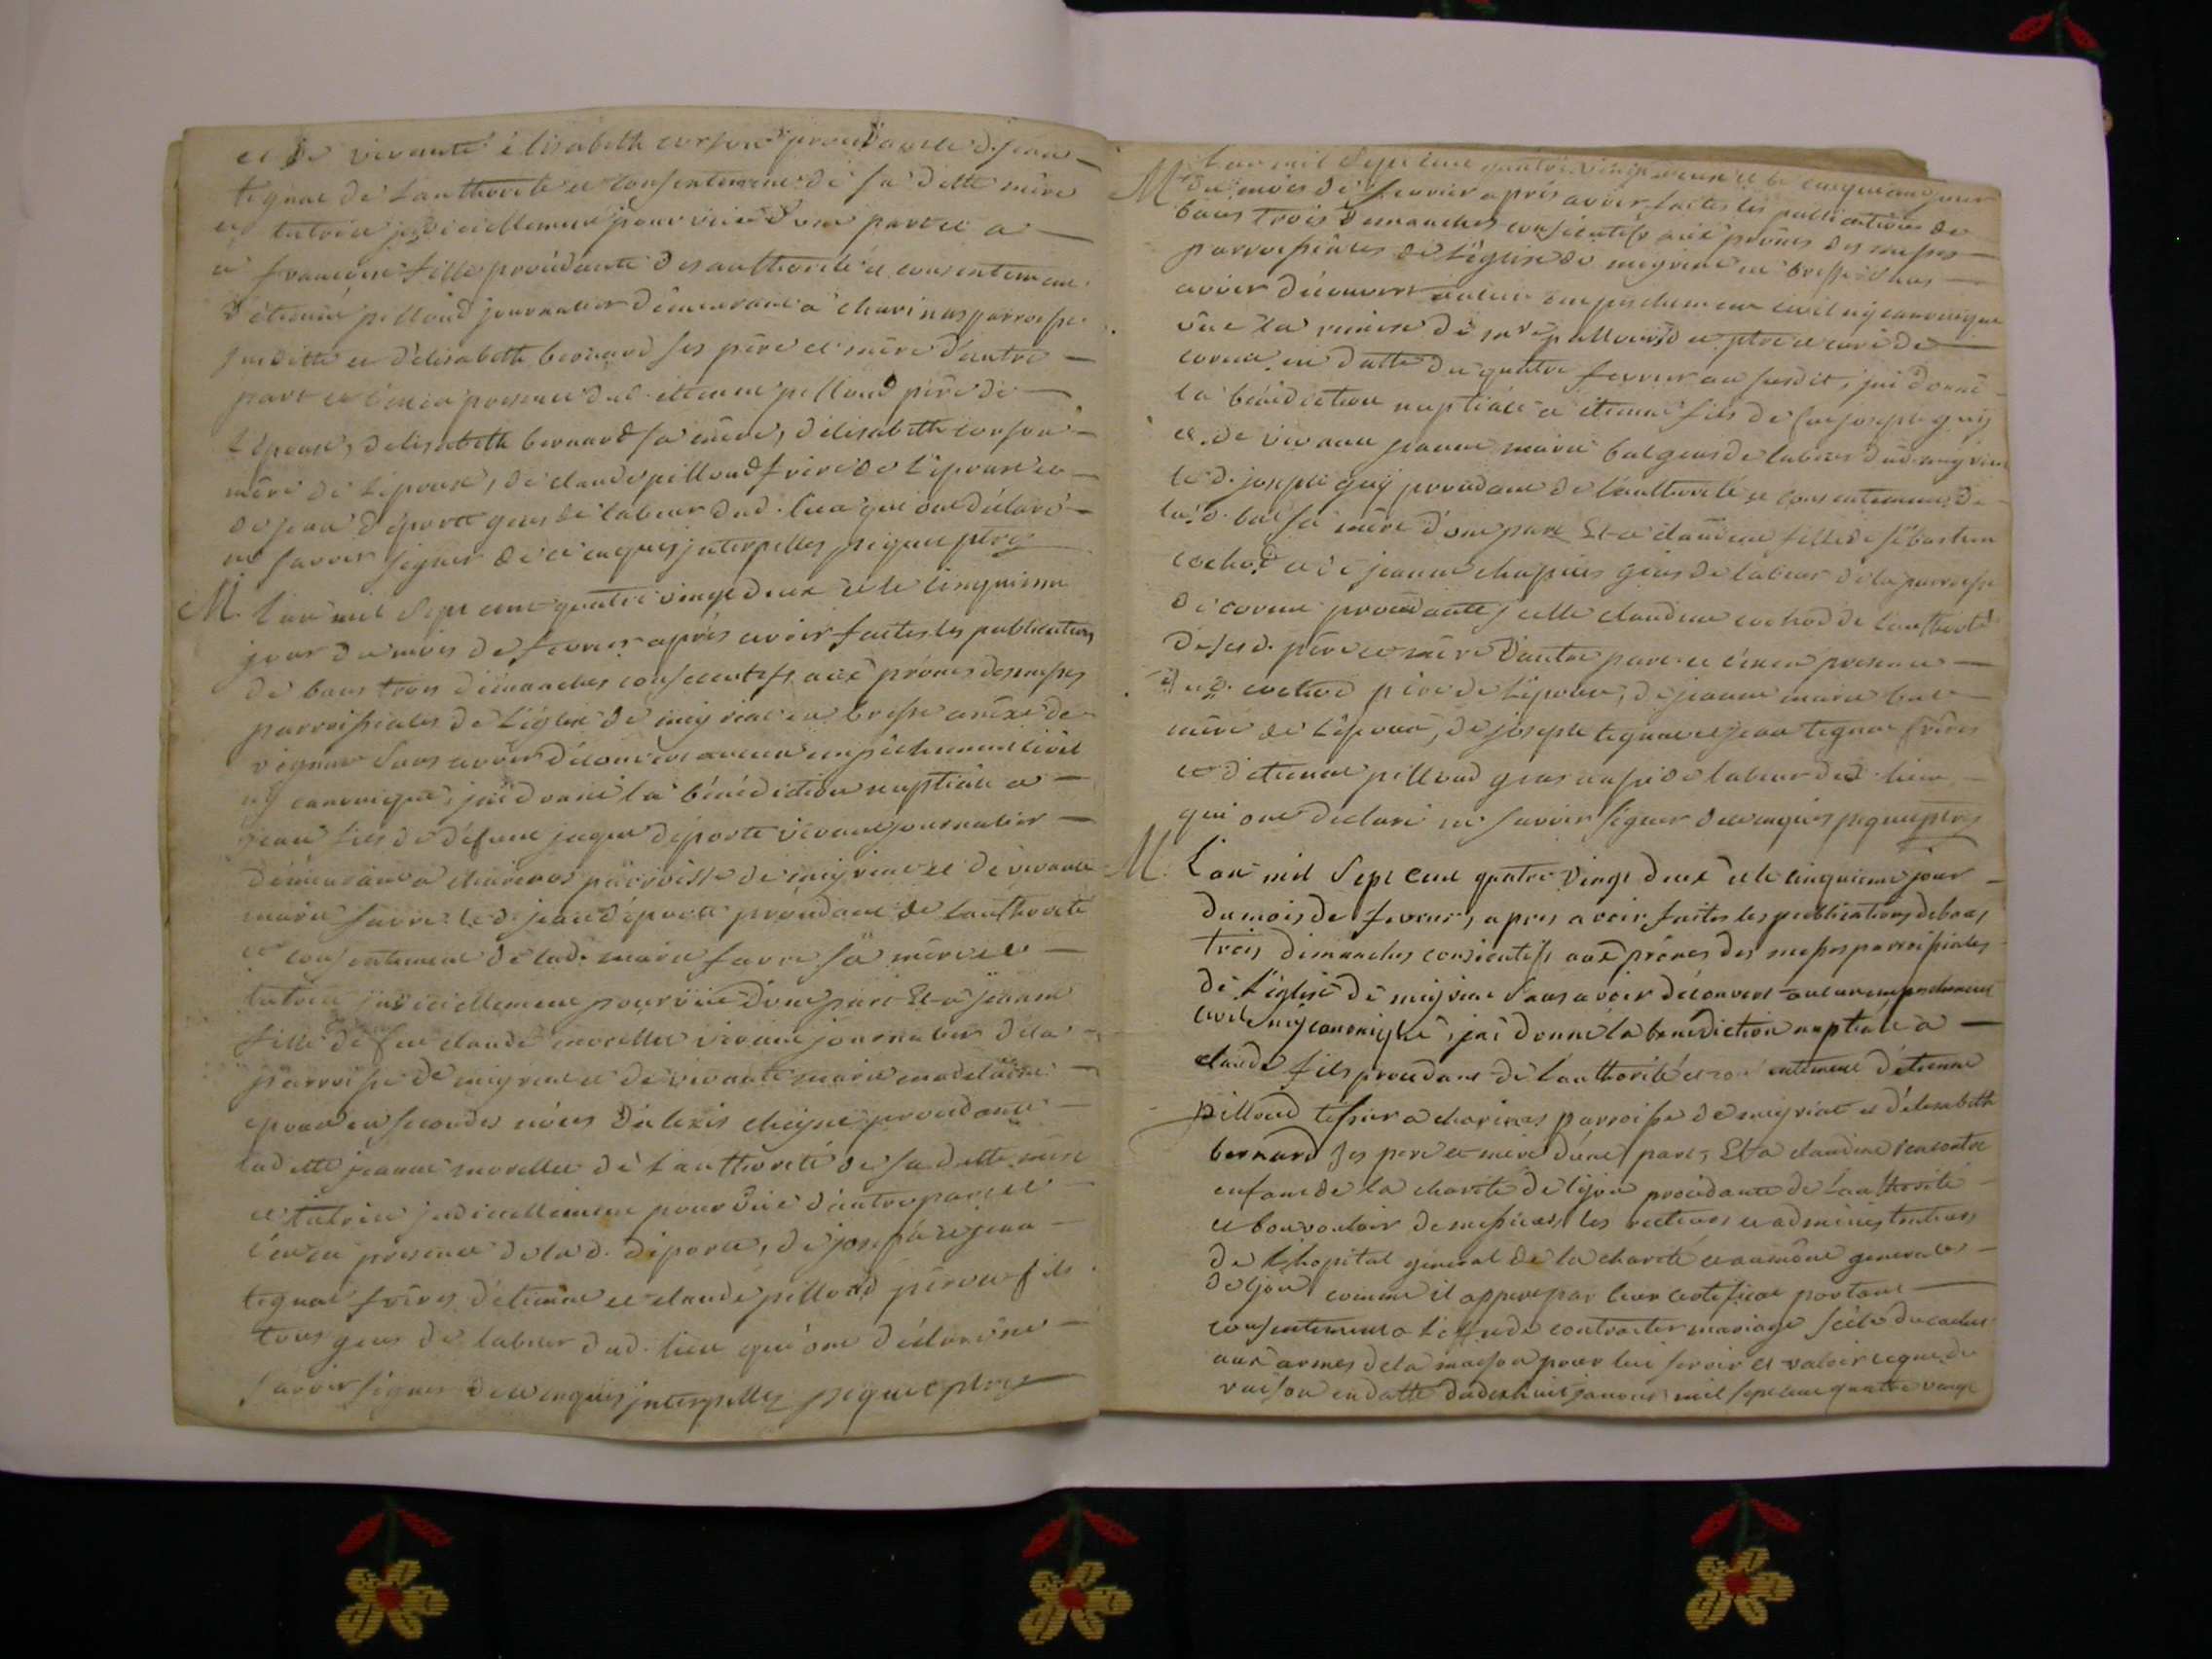 et de vivante élisabeth corsoud procédant led. jean
tignac de l'authorité et consentement de sa ditte mère
et tutrice judiciellement pourvuë d'une part et a
à françoise fille procédante des authorité et consentement
d'étienne pilloud journalier demeurant à charinas parroisse
susditte et d'élisabeth bernard ses père et mère d'autre
part et c'en en presence dud. étienne pilloud père de
l'épouse, d'elisabeth bernard sa mère, d'élisabeth
mère de l'époux, de claude pilloud frère de l'épouse et
de jean déporte gens de labeur dud. lieu qui ont déclaré
ne savoir signer de ce enquis interpellez
M. L'an mil sept cent quatre vingt deux et le cinquième
jour du mois de fevrier après avoir faites les publications
de bans trois dimanches consecutifs aux prônes des messes
parroissiales de l'église de meyriat en bresse anéxe de
sans avoir découvert aucun empêchement civil
ny canonique, jai donné la bénédiction nuptiale a
jean fils de défunt jaque déporte vivant journalier
demeurant a charinas parroisse de meyriat et de vivante
marie favre led. jean déporte procédant de l'authorité
et consentement de lad. marie favre sa mère et
tutrice judiciellement pourvuë d'une part Et a jeanne
fille de feu claude morellet vivant journalier de la
parroisse de meyriat et de vivante marie madelaine
epouse en secondes nôces d'alexis procédante
laditte jeanne morellet de l'authorité de sa ditte mère
et tutrice judiciellement pourvuë d'autre part et
c'en en presence de lad. déporte, de joseph et jean
tignac frères d'étienne et claude pilloud père et fils
tous gens de labeur dud. lieu qui ont déclaré ne
savoir signer de ce enquis interpellez
M. L'an mil sept cent quatre vingt deux et le cinquième jour
du mois de fevrier après avoir faites les publications de
bans trois dimanches consécutifs aux prônes des messes
parroissiales de l'église de meyriat en bresse sans
avoir découvert aucun empêchement civil ny canonique
vüe la remise de et curé de
en datte du quatre fevrier an susdit, jai donné
la bénédiction nuptiale a étienne fils de feu joseph guy
et de vivante jeanne marie bal gens de labeur dud. meyriat
led. joseph guy procédant de l'authorité et consentement de
lad. bal sa mère d'une part Et a claudine fille de sébastien
cochod et de jeanne chapuis gens de labeur de la parroisse
de procédante icelle claudine cochod de l'authorité
de sesd. père et mère d'autre part et c'en en presence
dud. cochod père de l'épouse, de jeanne marie bal
mère de l'époux, de joseph tignac et jean tignac frères
et d'étienne pilloud gens aussi de labeur dud. lieu
qui ont déclaré ne savoir signer de ce enquis
M. L'an mil sept cent quatre vingt deux et le cinquieme jour
du mois de fevrier, apres avoir faites les publications de bans
trois dimanches consécutifs aux prônes des messes parroissiales
de l'église de meyriat sans avoir découvert aucun empechement
civil ny canonique, jai donné la bénédiction nuptiale a
claude fils procédant de l'authorité et consentement d'étienne
pilloud tessier a charinas parroisse de meyriat et d'élisabeth
bernard ses pere et mère d'une part, Et a claudine rencontre
enfant de la charité de lyon procédante de l'authorité
et bon vouloir de messieurs les recteurs et administrateurs
de l'hopital général de la charité et aumône generale
de lyon comme il appert par leur certificat portant
consentement a l'effet de contracter mariage scélé du cachet
aux armes de la maison pour lui servir et valoir ce que de
raison en datte du dix huit janvier mil sept cent quatre vingt